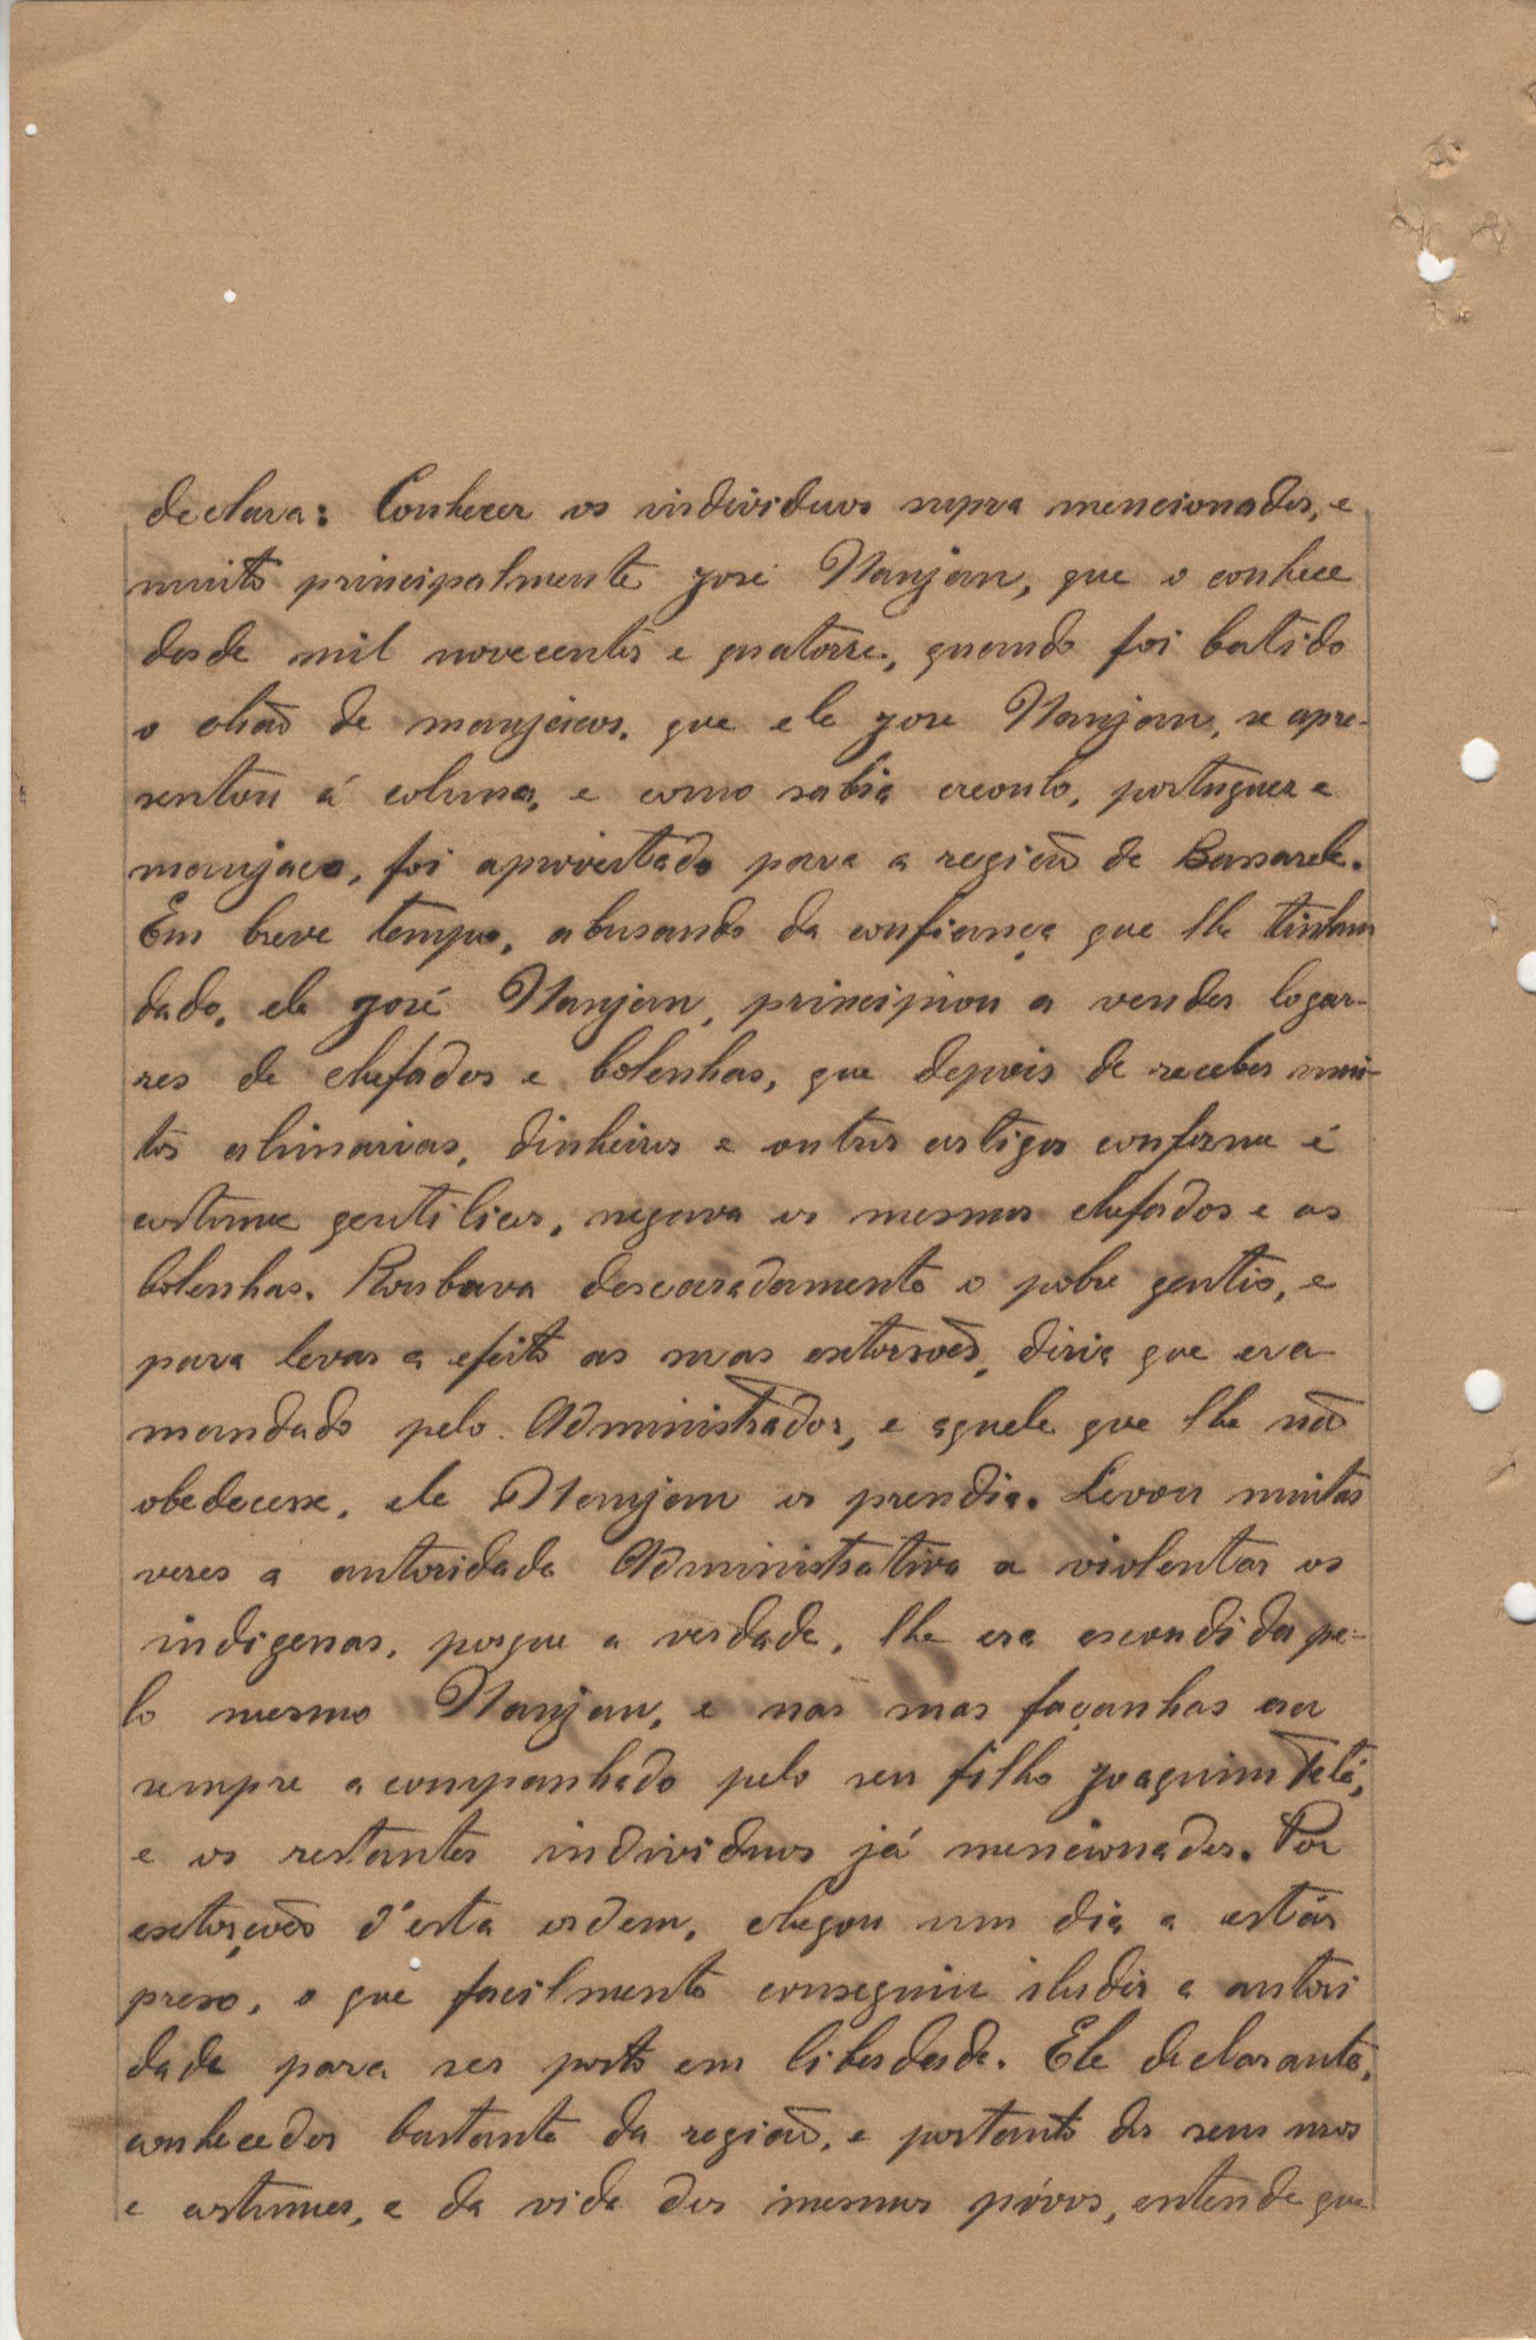 declara: Conhecer os individuos supra mencionados, e
muito principalmente José Nanjan, que o conhece
desde mil novecentos e quatorze, quando foi batido
o chão de manjacos, que ele José Nanjan, se apre-
sentou á coluna, e como sabia creoulo, portuguez e
manjaco, foi aproveitado para a região de Bassarele.
Em breve tempo, abusando da confiança que lhe tinham
dado, ele José Nanjan, principiou a vender logar-
res de chefados e bolenhas, que depois de receber mui-
tos alimarias, dinheiros e outros artigos conforme é
costume gentilicos, negava os mesmos chefados e as
bolenhas. Roubava descaradamente o pobre gentio, e
para levar a efeito as suas extorsões, dizia que era
mandado pelo Administrador, e aquele que lhe não
obedecesse, ele Nanjan os prendia. Levou muitas
vezes a autoridade Administrativa a violentar os
indigenas, porque a verdade, lhe era escondida pe-
lo mesmo Nanjan, e nas suas façanhas era
sempre acompanhado pelo seu filho Joaquim Telé,
e os restantes individuos já mencionados. Por
extorções d'esta ordem, chegou um dia a estár
preso, o que facilmente conseguiu iludir a autori
dade para ser posto em liberdade. Ele declarante,
conhecedor bastante da região, e portanto dos seus usos
e costumes, e da vida dos mesmos póvos, entende que